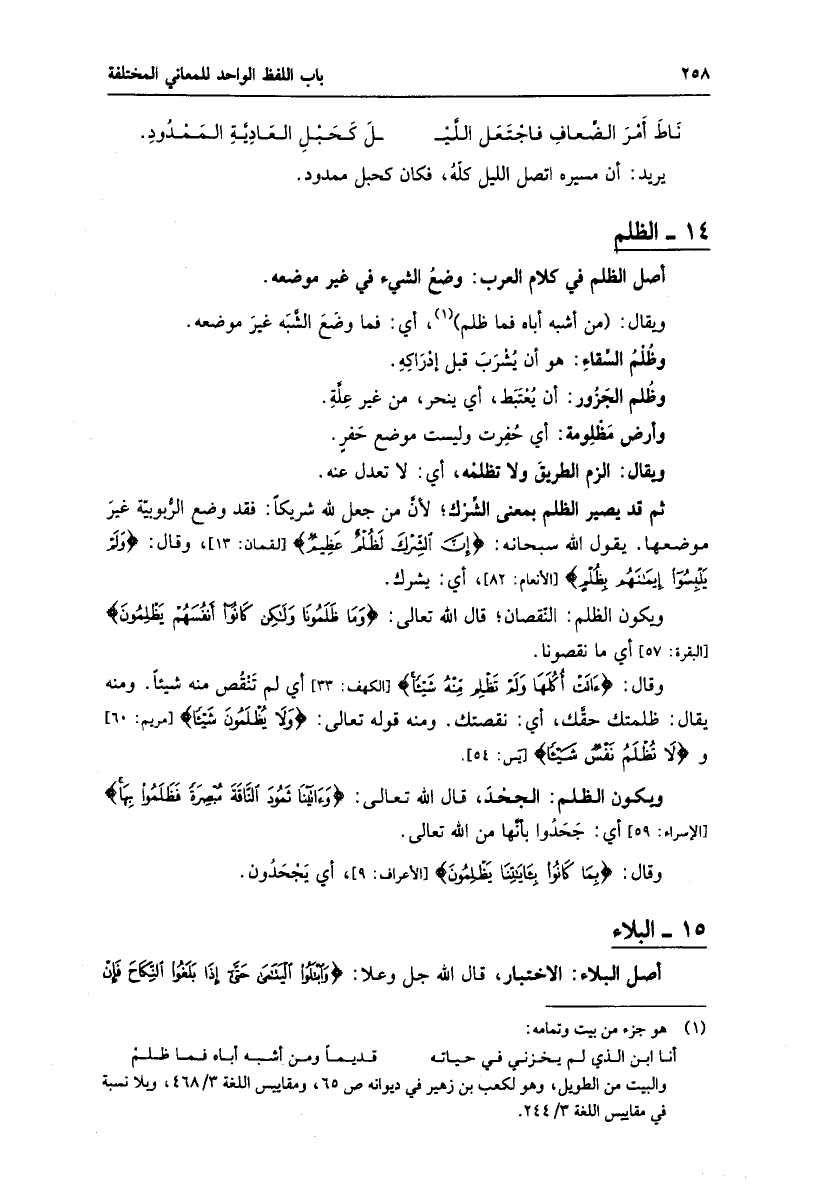 ٢٥٨ باب اللفظ الواحد للمعاني المختلفة
نَاطَ أَمْرَ الضِّعافِ فاجْتَعَل اللَّيْـ ـلَ كَحَبْلِ العَادِيَّةِ المَمْدُودِ.
يريد: أن مسيره اتصل الليل كلّهُ، فكان كحبل ممدود.
١٤ - الظلم
أصل الظلم في كلام العرب: وضعُ الشيء في غير موضعه.
ويقال: (من أشبه أباه فما ظلم)(١)، أي: فما وضَعَ الشَّبَه غيرَ موضعه.
وظُلْمُ السِّقاءِ: هو أن يُشْرَبَ قبل إدْرَاكِهِ.
وظُلم الجَزُور: أن يُعْتَبَط، أي ينحر، من غير عِلَّةِ.
وأرض مَظْلِومة: أي حُفِرت وليست موضع حَفرٍ.
ويقال: الزم الطريقَ ولا تظلمْه، أي: لا تعدل عنه.
ثم قد يصير الظلم بمعنى الشِّرْك؛ لأنَّ من جعل لله شريكاً: فقد وضع الرُّبوبيّة غيرَ
موضعها. يقول الله سبحانه: ﴿إِنَّ ٱلشِّرْكَ لَظُلْمٌ عَظِيمٌ﴾ [لقمان: ١٣]، وقال: ﴿وَلَمْ
يَلْبِسُوٓا۟ إِيمَـٰنَهُم بِظُلْمٍ﴾ [الأنعام: ٨٢]، أي: يشرك.
ويكون الظلم: النّقصان؛ قال الله تعالى: ﴿وَمَا ظَلَمُونَا وَلَـٰكِن كَانُوٓا۟ أَنفُسَهُمْ يَظْلِمُونَ﴾
[البقرة: ٥٧] أي ما نقصونا.
وقال: ﴿ءَاتَتْ أُكُلَهَا وَلَمْ تَظْلِم مِّنْهُ شَيْـًٔا﴾ [الكهف: ٣٣] أي لم تَنْقُص منه شيئاً. ومنه
يقال: ظلمتك حقَّك، أي: نقصتك. ومنه قوله تعالى: ﴿وَلَا يُظْلَمُونَ شَيْـًٔا﴾ [مريم: ٦٠]
و ﴿لَا تُظْلَمُ نَفْسٌ شَيْـًٔا﴾ [يَس: ٥٤].
ويكون الظلم: الجحْدَ، قال الله تعالى: ﴿وَءَاتَيْنَا ثَمُودَ ٱلنَّاقَةَ مُبْصِرَةً فَظَلَمُوا۟ بِهَا﴾
[الإسراء: ٥٩] أي: جَحَدُوا بأنَّها من الله تعالى.
وقال: ﴿بِمَا كَانُوا۟ بِـَٔايَـٰتِنَا يَظْلِمُونَ﴾ [الأعراف: ٩]، أي يَجْحَدُون.
١٥ - البلاء
أصل البلاء: الاختبار، قال الله جل وعلا: ﴿وَٱبْتَلُوا۟ ٱلْيَتَـٰمَىٰ حَتَّىٰٓ إِذَا بَلَغُوا۟ ٱلنِّكَاحَ فَإِنْ
(١) هو جزء من بيت وتمامه:
أنا ابن الذي لم يخزني في حياته قديماً ومن أشبه أباه فما ظلمْ
والبيت من الطويل، وهو لكعب بن زهير في ديوانه ص ٦٥، ومقاييس اللغة ٤٦٨/٣، وبلا نسبة
في مقاييس اللغة ٢٤٤/٣.